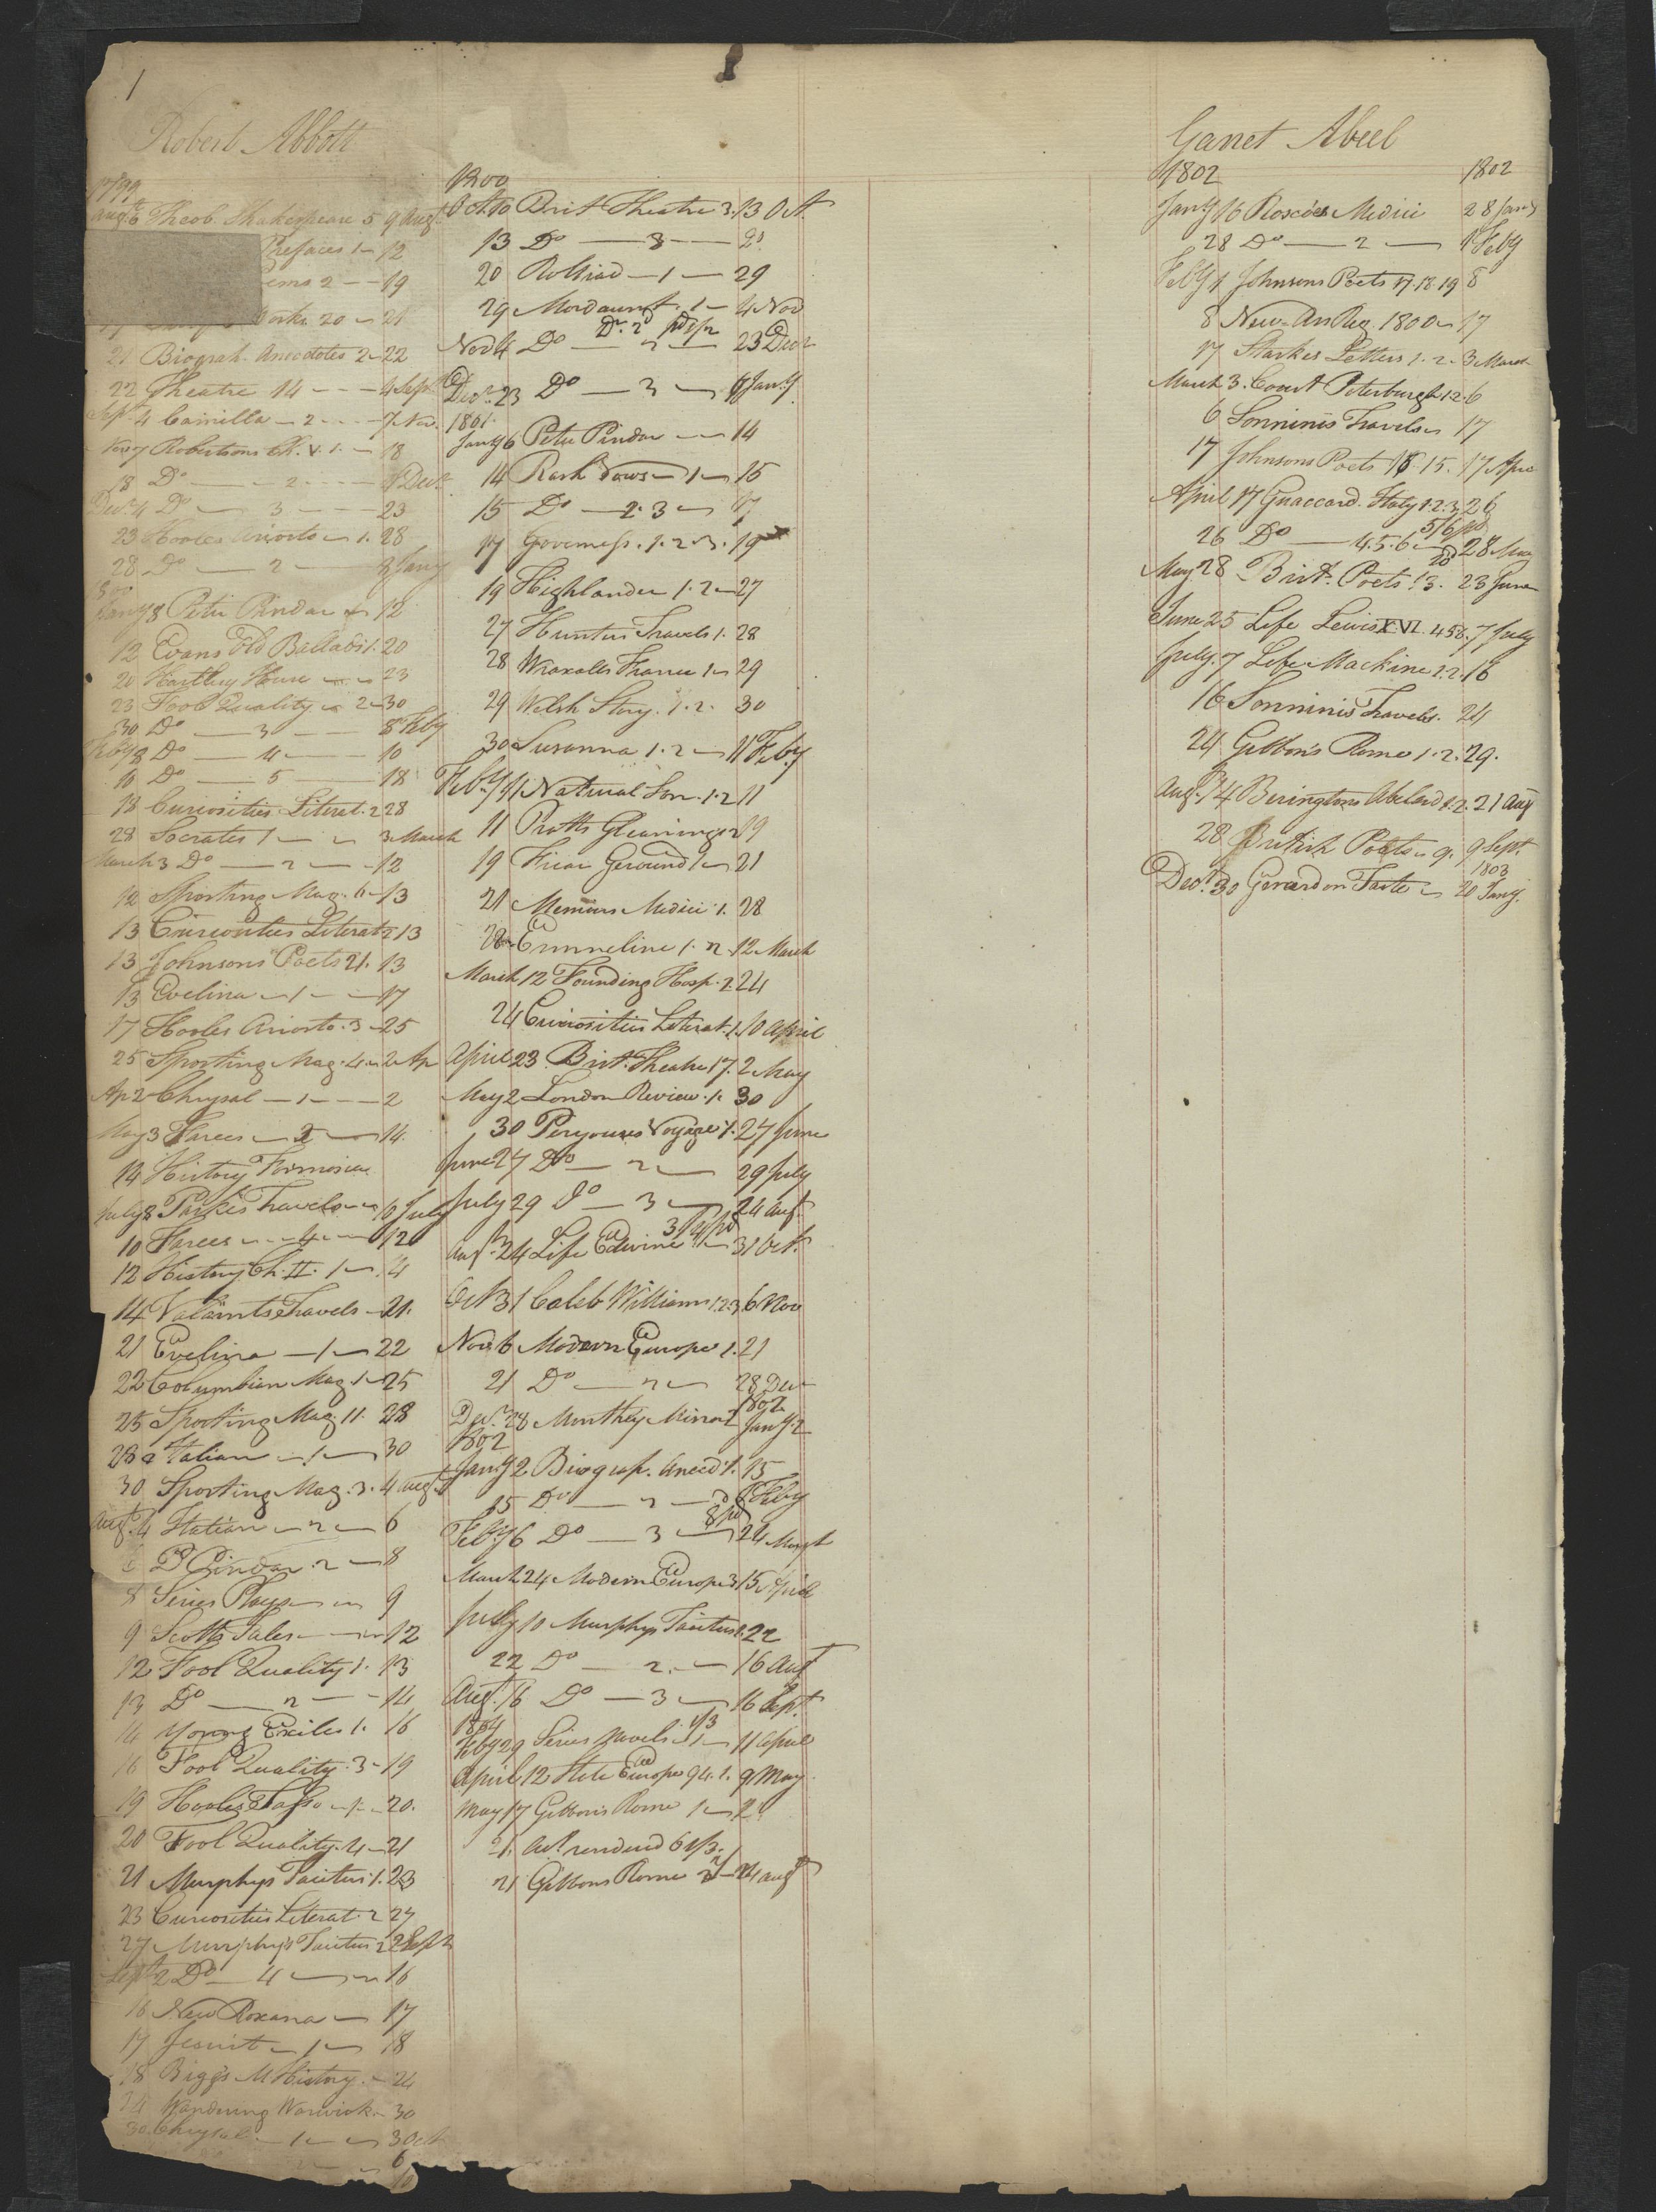 1
Robert Abbott
1799
Augt 6 Theob. Shakespeare 5 9 Augt
Prefaces 1 12
ems 2 19
Works 20 21
21 Biograh. Anecdotes 2 22
22 Theatre 14 4 Sept
Sept 4 Camilla 2 7 Nov.
Nov 7 Robertsons Ch. V. 1. 18
18 Do 2 4 Decr
Decr 4 Do 3 23
23 Hooles Ariosto 1. 28
28 Do 2 8 Jany
1800
Jany 8 Peter Pindar 12
12 Evans Old Ballads 1. 20
20 Hartley House 23
23 Fool Quality 2 30
30 Do 3 8 Feby
Feby 8 Do 4 10
10 Do 5 18
18 Curiosities Literat. 2 28
28 Socrates 1 3 March
March 3 Do 2 12
12 Sporting Mag. 6 13
13 Curiosities Literat 2 13
13 Johnsons Poets 21. 13
13 Evelina 1 17
17 Hooles Ariosto. 3 25
25 Sporting Mag. 4 2 Ap
Ap 2 Chrysal 1 2
May 3 Farces 2 14
14 History Formosa
July 8 Parkes Travels 10 July
10 Farces 4 12
12 History Ch. II. 1 4
14 Valaints Travels 21.
21 Evelina 1 22
22 Columbian Mag. 1 25
25 Sporting Mag. 11. 28
28 Italian 1 30
30 Sporting Mag. 3. 4 Augt
Augt 4 Italian 2 6
6 P Pindar 2 8
8 Series Plays 9
9 Scotts Tales 12
12 Fool Quality 1. 13
13 Do 2 14
14 Young Exiles 1. 16
16 Fool Quality. 3 19
19 Hooles Tasso 1 20.
20 Fool Quality. 4 21
21 Murphys Tacitus 1. 23
23 Curiosities Literat. 2 27
27 Murphys Tacitus 2 2 Sept
Sept 2 Do 4 16
16 New Roxana 17
17 Jesuit 1 18
18 Biggs M History 24
24 Wandering Warwick 30
30 Chrysal 1 3 Oct
6
10
1800
Oct 10 Brit Theatre 3. 13 Oct
13 Do 8 20
20 Rolliad 1 29
29 Mordaunt 1 4 Nov
Nov 4 Do 2 23 Decr
Decr 23 Do 3 6 Jany
1801.
Jany 6 Peter Pindar 14
14 Rash Vows 1 15
15 Do 2. 3 17
17 Governess. 1. 2. 3. 19
19 Highlander 1. 2 27
27 Hunters Travels 1. 28
28 Wraxalls France 1 29
29 Welsh Story. 1. 2. 30
30 Susanna 1. 2 11 Feby
Feby 11 Natural Son. 1. 2 11
11 Pratts Gleanings 2 19
19 Friar Geround 1 21
21 Memoirs Medici 1. 28
28 Emmeline 1. 2 12 March
March 12 Founding Hosp. 2. 24
24 Curiosities Literat. 1. 10 April
April 23 Brit. Theatre 17. 2 May
May 2 London Review. 1. 30
30 Peryouses Voyage 1. 27 June
June 27 Do 2 29 July
July 29 Do 3 24 Augt
3/ pd
Augt 24 Life Edwine 1 31 Oct.
Oct 31 Caleb Williams 1. 2. 3. 6 Nov
Nov 6 Modern Europe 1. 21
21 Do 2 28 Decr
Decr 28 Monthly Mirror 1802 Jany 2
1802
Jany 2 Biograp. Anecd. 1. 15
15 Do 2 6 Feby
Feby 6 Do 3 24 March
March 24 Modern Europe 3 15 April
July 10 Murphys Tacitus 1. 22
22 Do 2. 16 Augt
Augt 16 Do 3 16 Sept.
1804
Feby 29 Series Novels 1 11 April
April 12 State Europe 94. 1. 9 May
May 17 Gibbons Rome 1 21
21. Act rendered
21 Gibbons Rome 24 Augt
Garret Abeel
1802 1802
Jany 16 Roscoes Medici 28 Jany
28 Do 2 1 Feby
Feby 1 Johnsons Poets 17. 18. 19 8
8 New An Reg. 1800 17
17 Starkes Letters 1. 2. 3 March
March 3. Court Peterburgh 1. 2. 6
6 Sonninis Travels 17
17 Johnsons Poets 15. 17 Apr
April 17 Guaccard. Italy 1. 2. 3 26
5/6 pd
26 Do 4. 5. 6 28 May
May 28 Brit. Poets 13. 23 June
June 25 Life Lewis XVI. 4 58. 7 July
July. 7 Life Mackine 1. 2. 16
16 Sonninis Travels. 24
24 Gibbon's Rome 1. 2. 29.
Augt 14 Beringtons Abelard 1. 2. 21 Aug
28 British Poets 9. 9 Sept.
1803
Decr 30 Gerard on Taste 20 Jany.